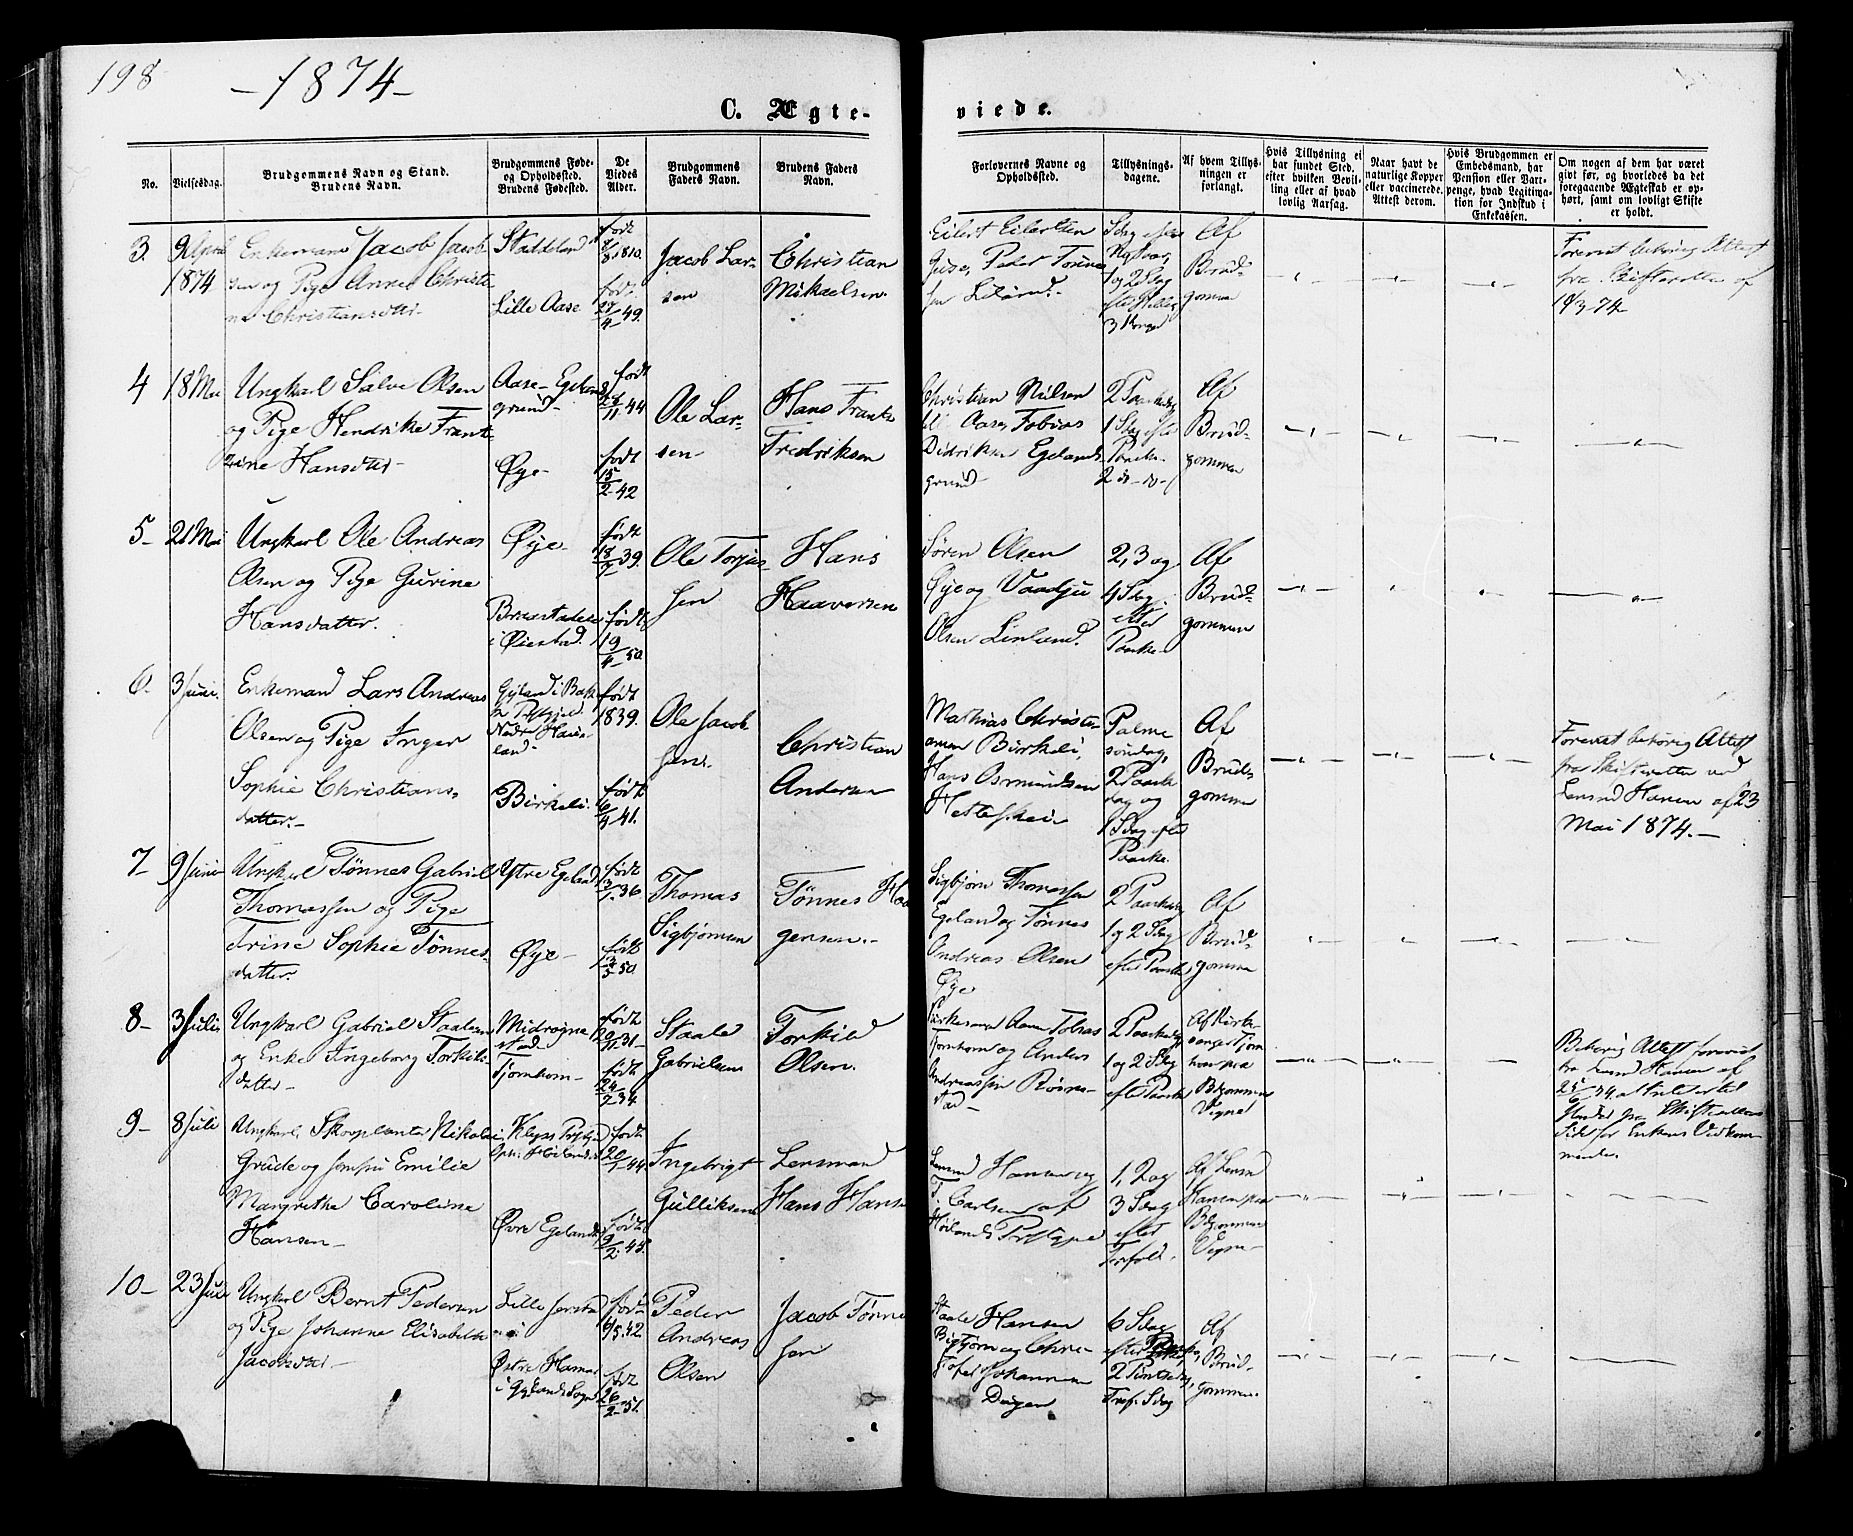 198
-1874-
C. Ægte-
viede.
No.
Vielsesdag.
Brudgommens Navn og Stand.
Brudens Navn.
Brudgommens Føde-
og Opholdssted.
Brudens Fødested.
De
Viedes
Alder.
Brudgommens
Faders Navn.
Brudens Faders
Navn.
Forlovernes Navne og
Opholdssted.
Tillysnings-
dagene.
Af hvem Tillys-
ningen er
forlangt.
Hvis Tillysning ei
har fundet Sted,
efter hvilken Bevil-
ling eller af hvad
lovlig Aarsag.
Naar havt de
naturlige Kopper
eller vaccinerede.
Attest derom.
Hvis Brudgommen er
Embedsmand, har
Pension eller Var-
penge, hvad Legitima-
tion for Indskud i
Enkekassen.
Om nogen af dem har været
gift før, og hvorledes da det
foregaaende Ægteskab er op-
hørt, samt om lovligt Skifte
er holdt.
3.
9 April
1874
Enkemand Jacob Jacob-
sen og Pige Anne Christi-
ne Christiansdtr.
Staddeland
Lille Aase
født
1810.
født
27/4 49.
Jacob Lar-
sen
Christian
Mikaelsen.
Eilert Eilertsen
Peder Tønnes-
sen
Sdag efter
Nytaar,
1 og 2 Sdag
Af
Brud-
gommen
Forevist behørig Attest
fra Skifteretten af
19/3 74
4
18 Mai
Ungkarl Salve Olsen
og Pige Hendrikke Frant-
zine Hansdtr -
Aase - Egelands-
grund -
Øye -
født
28/11 44
født
15/2 42
Ole Lar-
sen -
Hans Frantz
Fredriksen
Christian Nilsen
Aase, Tobias
Didriksen Egelands-
grund -
2 Paaskedag
1 Sdag efter
Paaske
2 do - do -
Af
Brud-
gommen
5 -
21 Mai
Ungkarl Ole Andreas
Olsen og Pige Gurine
Hansdatter.
Øye -
i Øiestad.
født
18/7 39.
født
19/4 50
Ole Torjus-
sen
Hans
Haaversen
Søren Olsen
Øye og
Olsen
2, 3 og
4 Sdag
efter
Paaske -
Af
Brud-
gommen
6.
3 Juni.
Enkemand Lars Andreas
Olsen og Pige Inger
Sophie Christians-
datter. -
Gyland i Bak-
ke Prstgjeld
land -
Birkeli
født
1839.
født
6/4 41.
Ole Jacob-
sen.
Christian
Andersen
Mathias Christi-
ansen Birkeli,
Hans Osmundsen
Hestehei
Palme
søndag,
2 Paaske
dag og
1 Sdag efter
Paaske.
Af
Brud-
gommen
Forevist behørig Attest
fra Skifteretten ved
Lensmd Hansen af 23
Mai 1874. -
7 -
9 Juni
Ungkarl Tønnes Gabriel
Thomassen og Pige
Trine Sophie Tønnes-
datter.
Ystre Egeland
Øye -
født
36
født
50
Thomas
Sigbjørnsen
Tønnes Haa-
gensen. -
Sigbjørn Thomassen
Egeland og Tønnes
Andreas Olsen
Øye
2 Paaskedag
1 og 2 Sdag
efter Paaske
Af
Brud-
gommen
8 -
3 Juli
Ungkarl Gabriel Staalesen
og Enke Ingeborg Torkils-
datter -
Tjomhom -
født
31 -
født
24/7 34
Staale
Gabrielsen
Torkild
Olsen.
Kirkesanger Tobias
Tjomhom og Anders
Andreassen
2 Paaskedag
1 og 2 Sdag
efter Paaske
Af Kirke-
sanger Tjom
hom paa
Bdgommens
Vegne
Behørig Attest forevist
fra Lensmd Hansen af
25/6 74, at Intet er til
Hinder fra Skifterettens
Side for Enkens Vedkom-
mende.
9 -
8 Juli
Ungkarl, Skovplanter Nikolai
Grude og Jomfru Emilie
Margrethe Caroline
Hansen -
Klepp Prstgjd
Øvre Egeland
født
44
født
9/2 45
Ingebrigt
Gulliksen
Lensmand
Hans Hansen
Lensmd Hansen og
T. Carlsen af
Høilands Prstgjæld
1, 2 og
3 Sdag
efter
Trefold.
Af Lensmd
Hansen paa
Bdgommens
Vegne -
10 -
23 Juli
Ungkarl Bernt Pedersen
og Pige Johanne Elisabeth
Jacobsdtr -
Østre
i Gylands Sogn
født
42
født
26/2 51.
Peder
Andreas
Olsen
Jacob Tønne-
sen
Staale Hansen
og Chri-
stofer Johannesen
6 Sdag
efter Paaske,
2 Pintsedag,
Tref. Sdag
Af
Brud-
gommen.